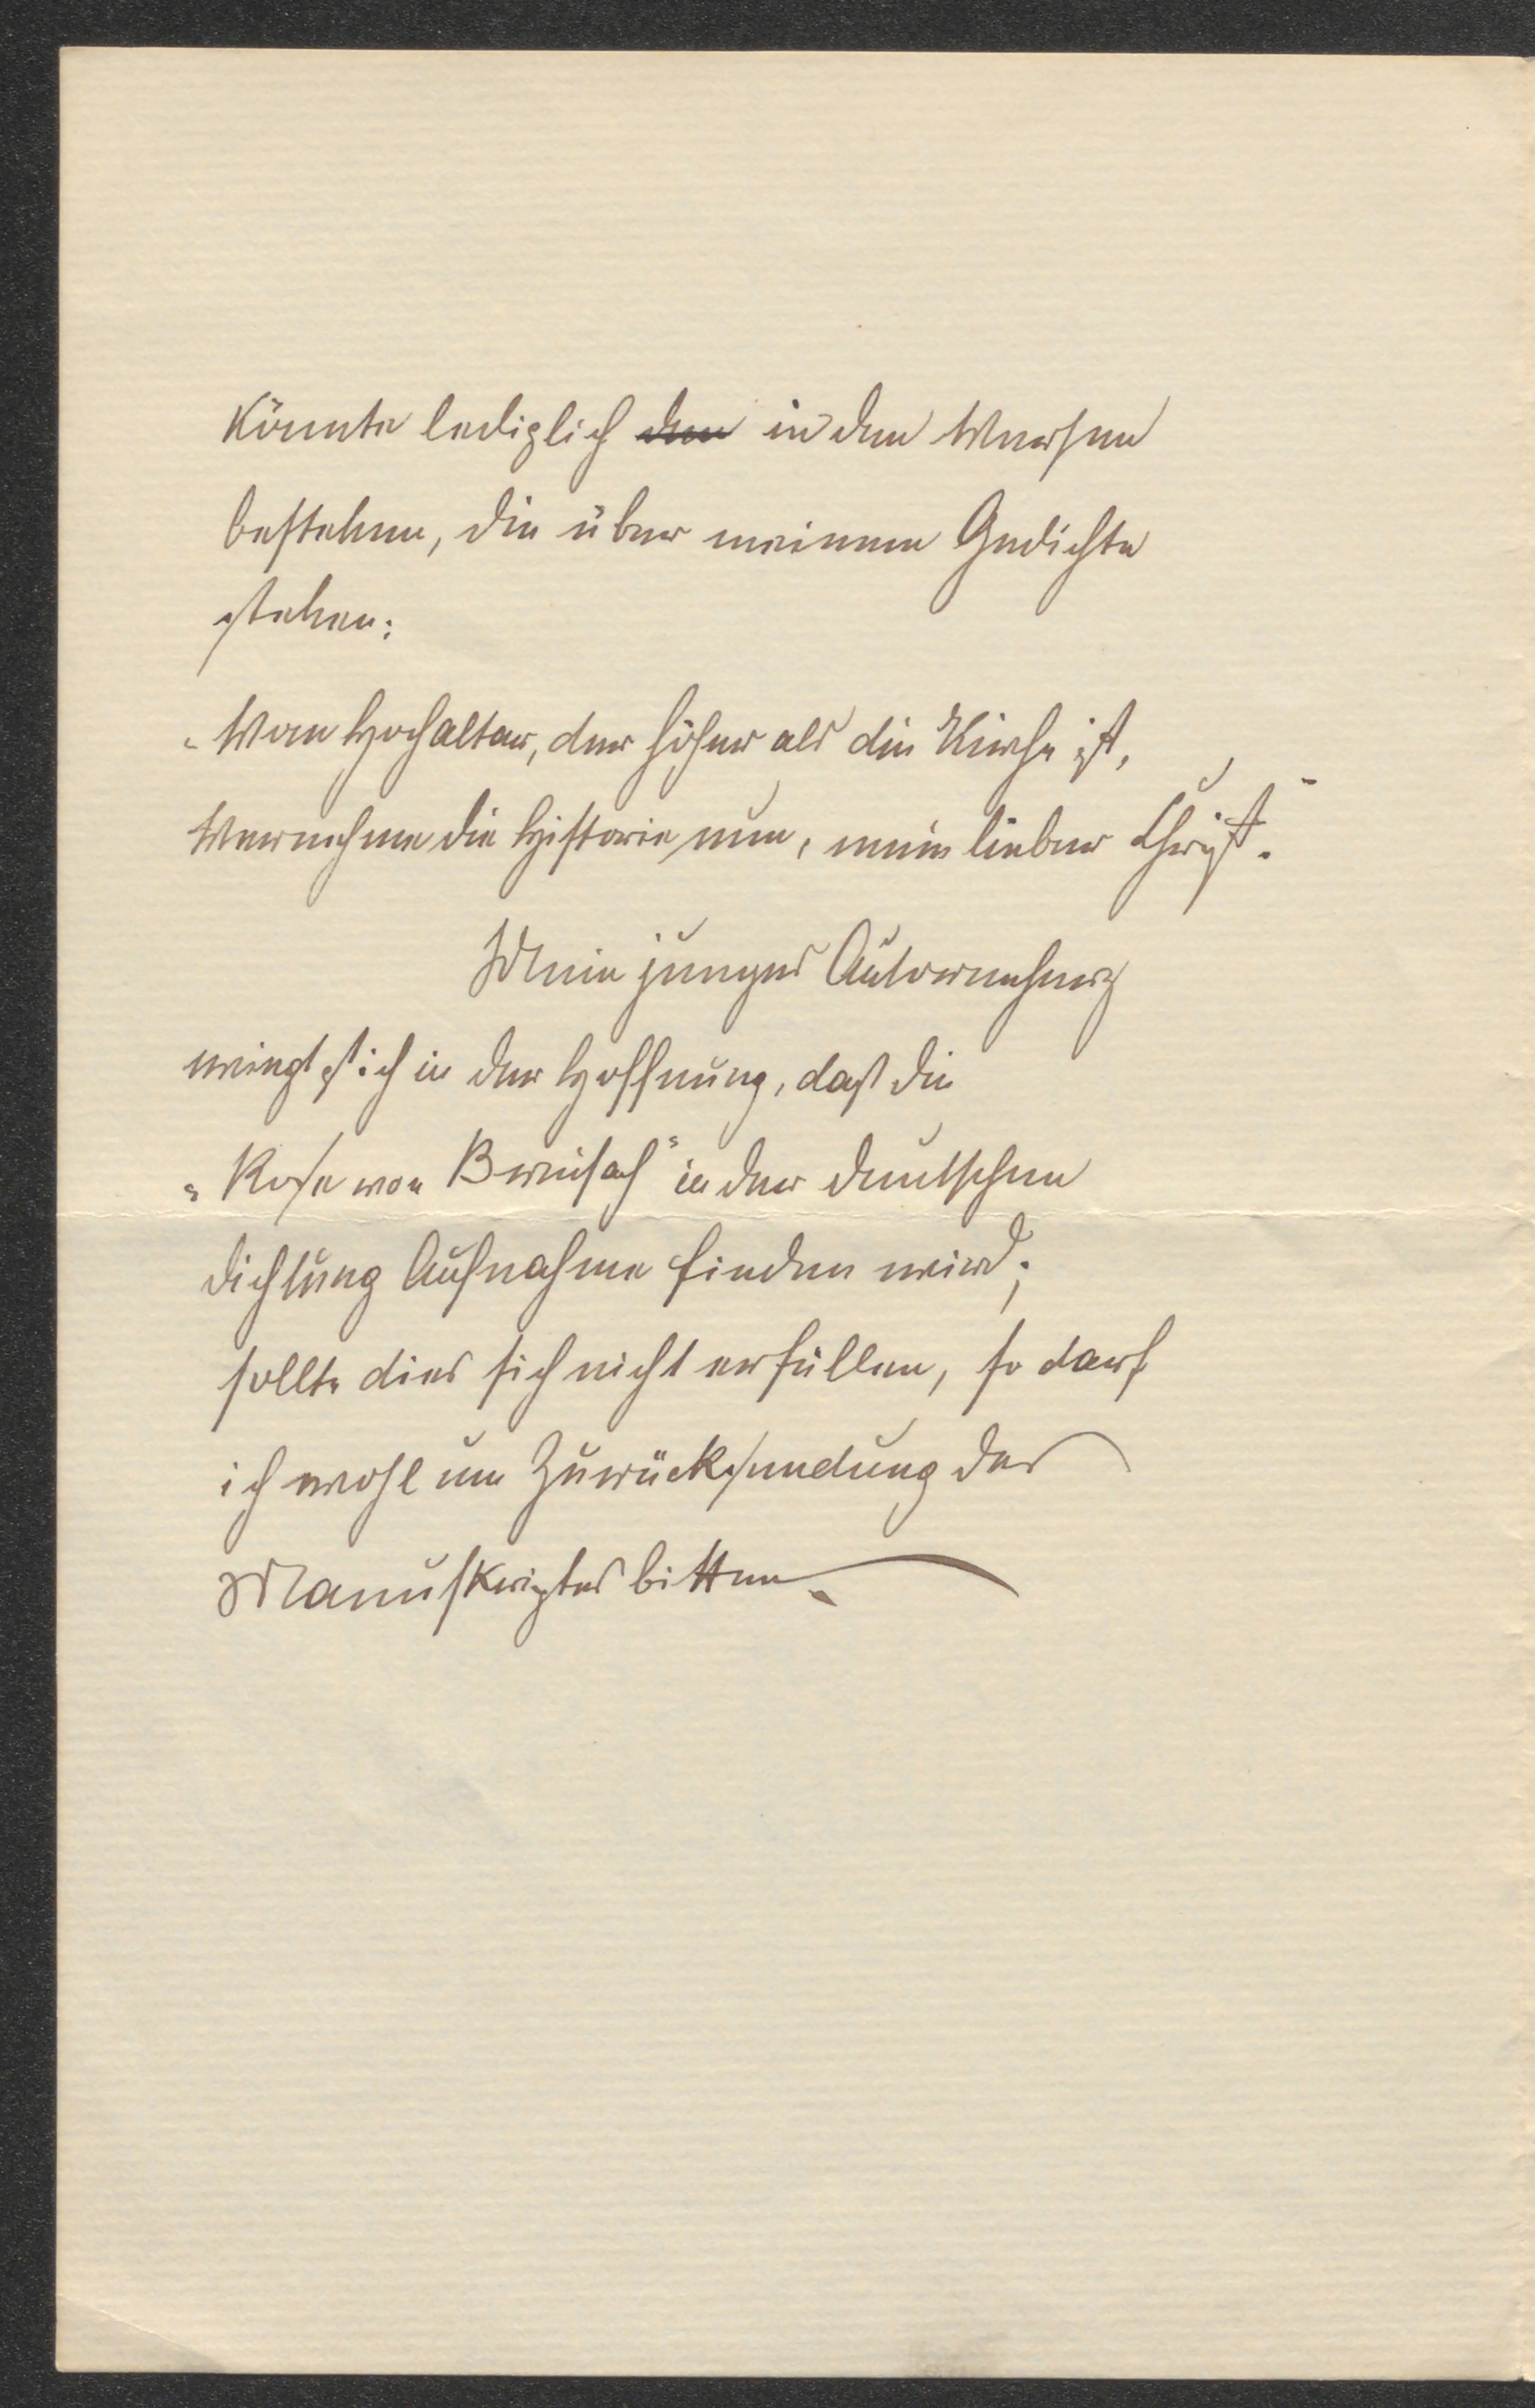 könnte lediglich den in den Versen
bestehen, die über meinem Gedichte
stehen:
„Vom Hochaltar, der höher als die Kirche ist,
Vernehme die Historie nun, mein lieber Christ."
Mein junges Autorenherz
wiegt sich in der Hoffnung, daß die
„Rose von Breisach" in der deutschen
Dichtung Aufnahme finden wird;
sollte dies sich nicht erfüllen, so darf
ich wohl um Zurücksendung des
Manuskriptes bitten.